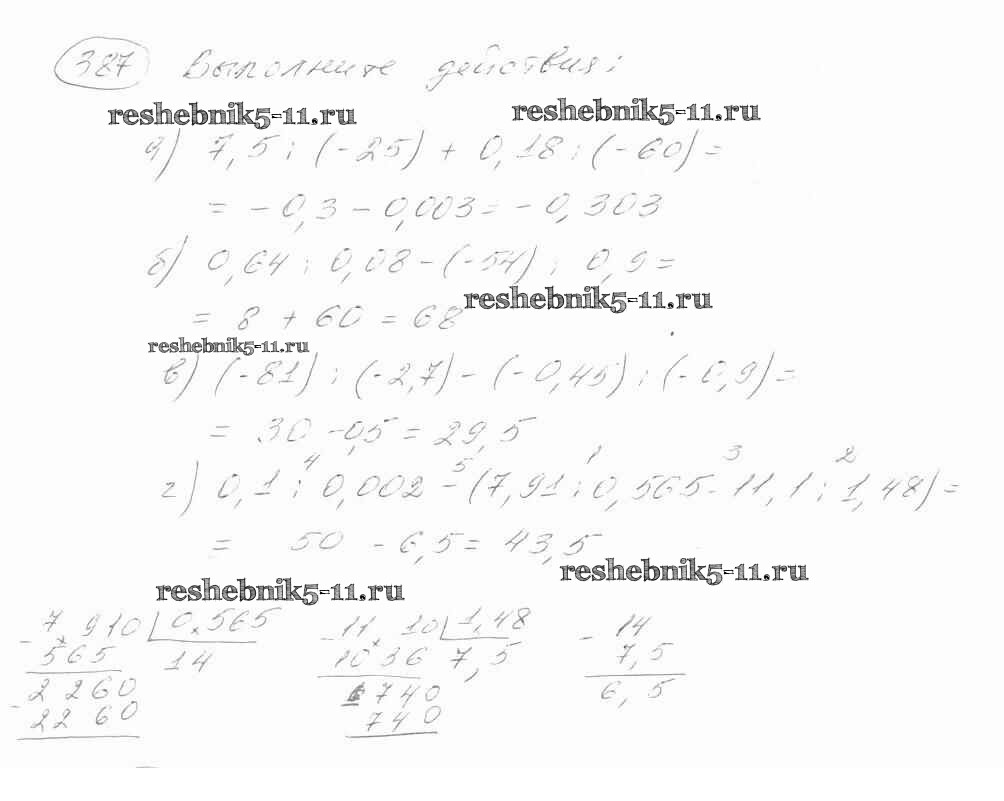 387 Выполните действия:
reshebnik5-11.ru reshebnik5-11.ru
а) 7,5 : (-25) + 0,18 : (-60) =
= - 0,3 - 0,003 = - 0,303
б) 0,64 : 0,08 - (-54) : 0,9 =
reshebnik5-11.ru
= 8 + 60 = 68
reshebnik5-11.ru
в) (-81) : (-2,7) - (-0,45) : (-0,9) =
= 30 - 0,5 = 29,5
4 5 1 3 2
г) 0,1 : 0,002 - (7,91 : 0,565 - 11,1 : 1,48) =
= 50 - 6,5 = 43,5
reshebnik5-11.ru reshebnik5-11.ru
- 7 910 | 0,565
565 14
- 2 260
22 60
- 11 10 | 1,48
10 36 7,5
740
740
- 14
7,5
6,5